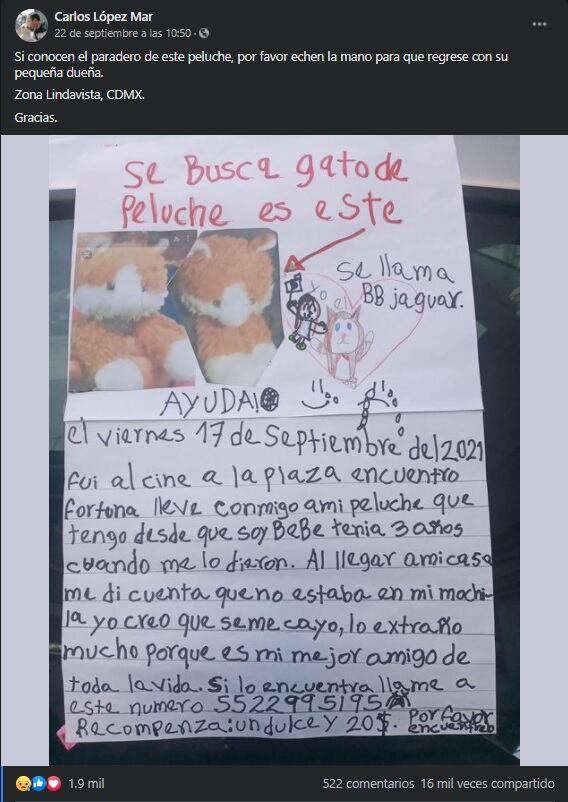 Carlos López Mar
22 de septiembre a las 10:50
Si conocen el paradero de este peluche, por favor echen la mano para que regrese con su
pequeña dueña.
Zona Lindavista, CDMX.
Gracias.
Se Busca gato de
Peluche es este
se llama
BB jaguar.
yo
el
AYUDA!
el viernes 17 de septiembre del 2021
fui al cine a la plaza encuentro
fortuna lleve conmigo ami peluche que
tengo desde que soy BeBe tenia 3 años
cuando me lo dieron. Al llegar ami casa
me di cuenta que no estaba en mi mochi-
la yo creo que se me cayo, lo extraño
mucho porque es mi mejor amigo de
toda la vida. Si lo encuentra llame a
este numero 5522995195
Recompenza: un dulce y 20$. Por favor
encuentrelo
1.9 mil
522 comentarios
16 mil veces compartido